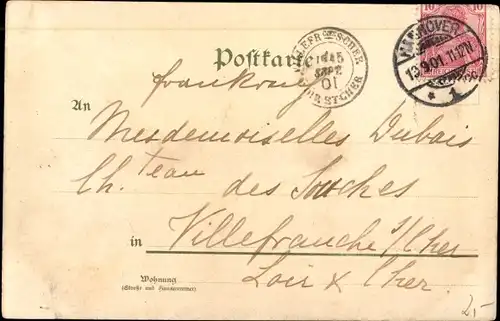 10 10
HANNOVER
13.9.01.11-12N
* 1
VILLEFR
SCHER
15
SEPT
01
Postkarte
An
Mesdemoiselles Dubais
Ch. Teau des Souches
in Villefranche s/Cher
Loir & Cher.
Wohnung
(Straße und Hausnummer)
2,-